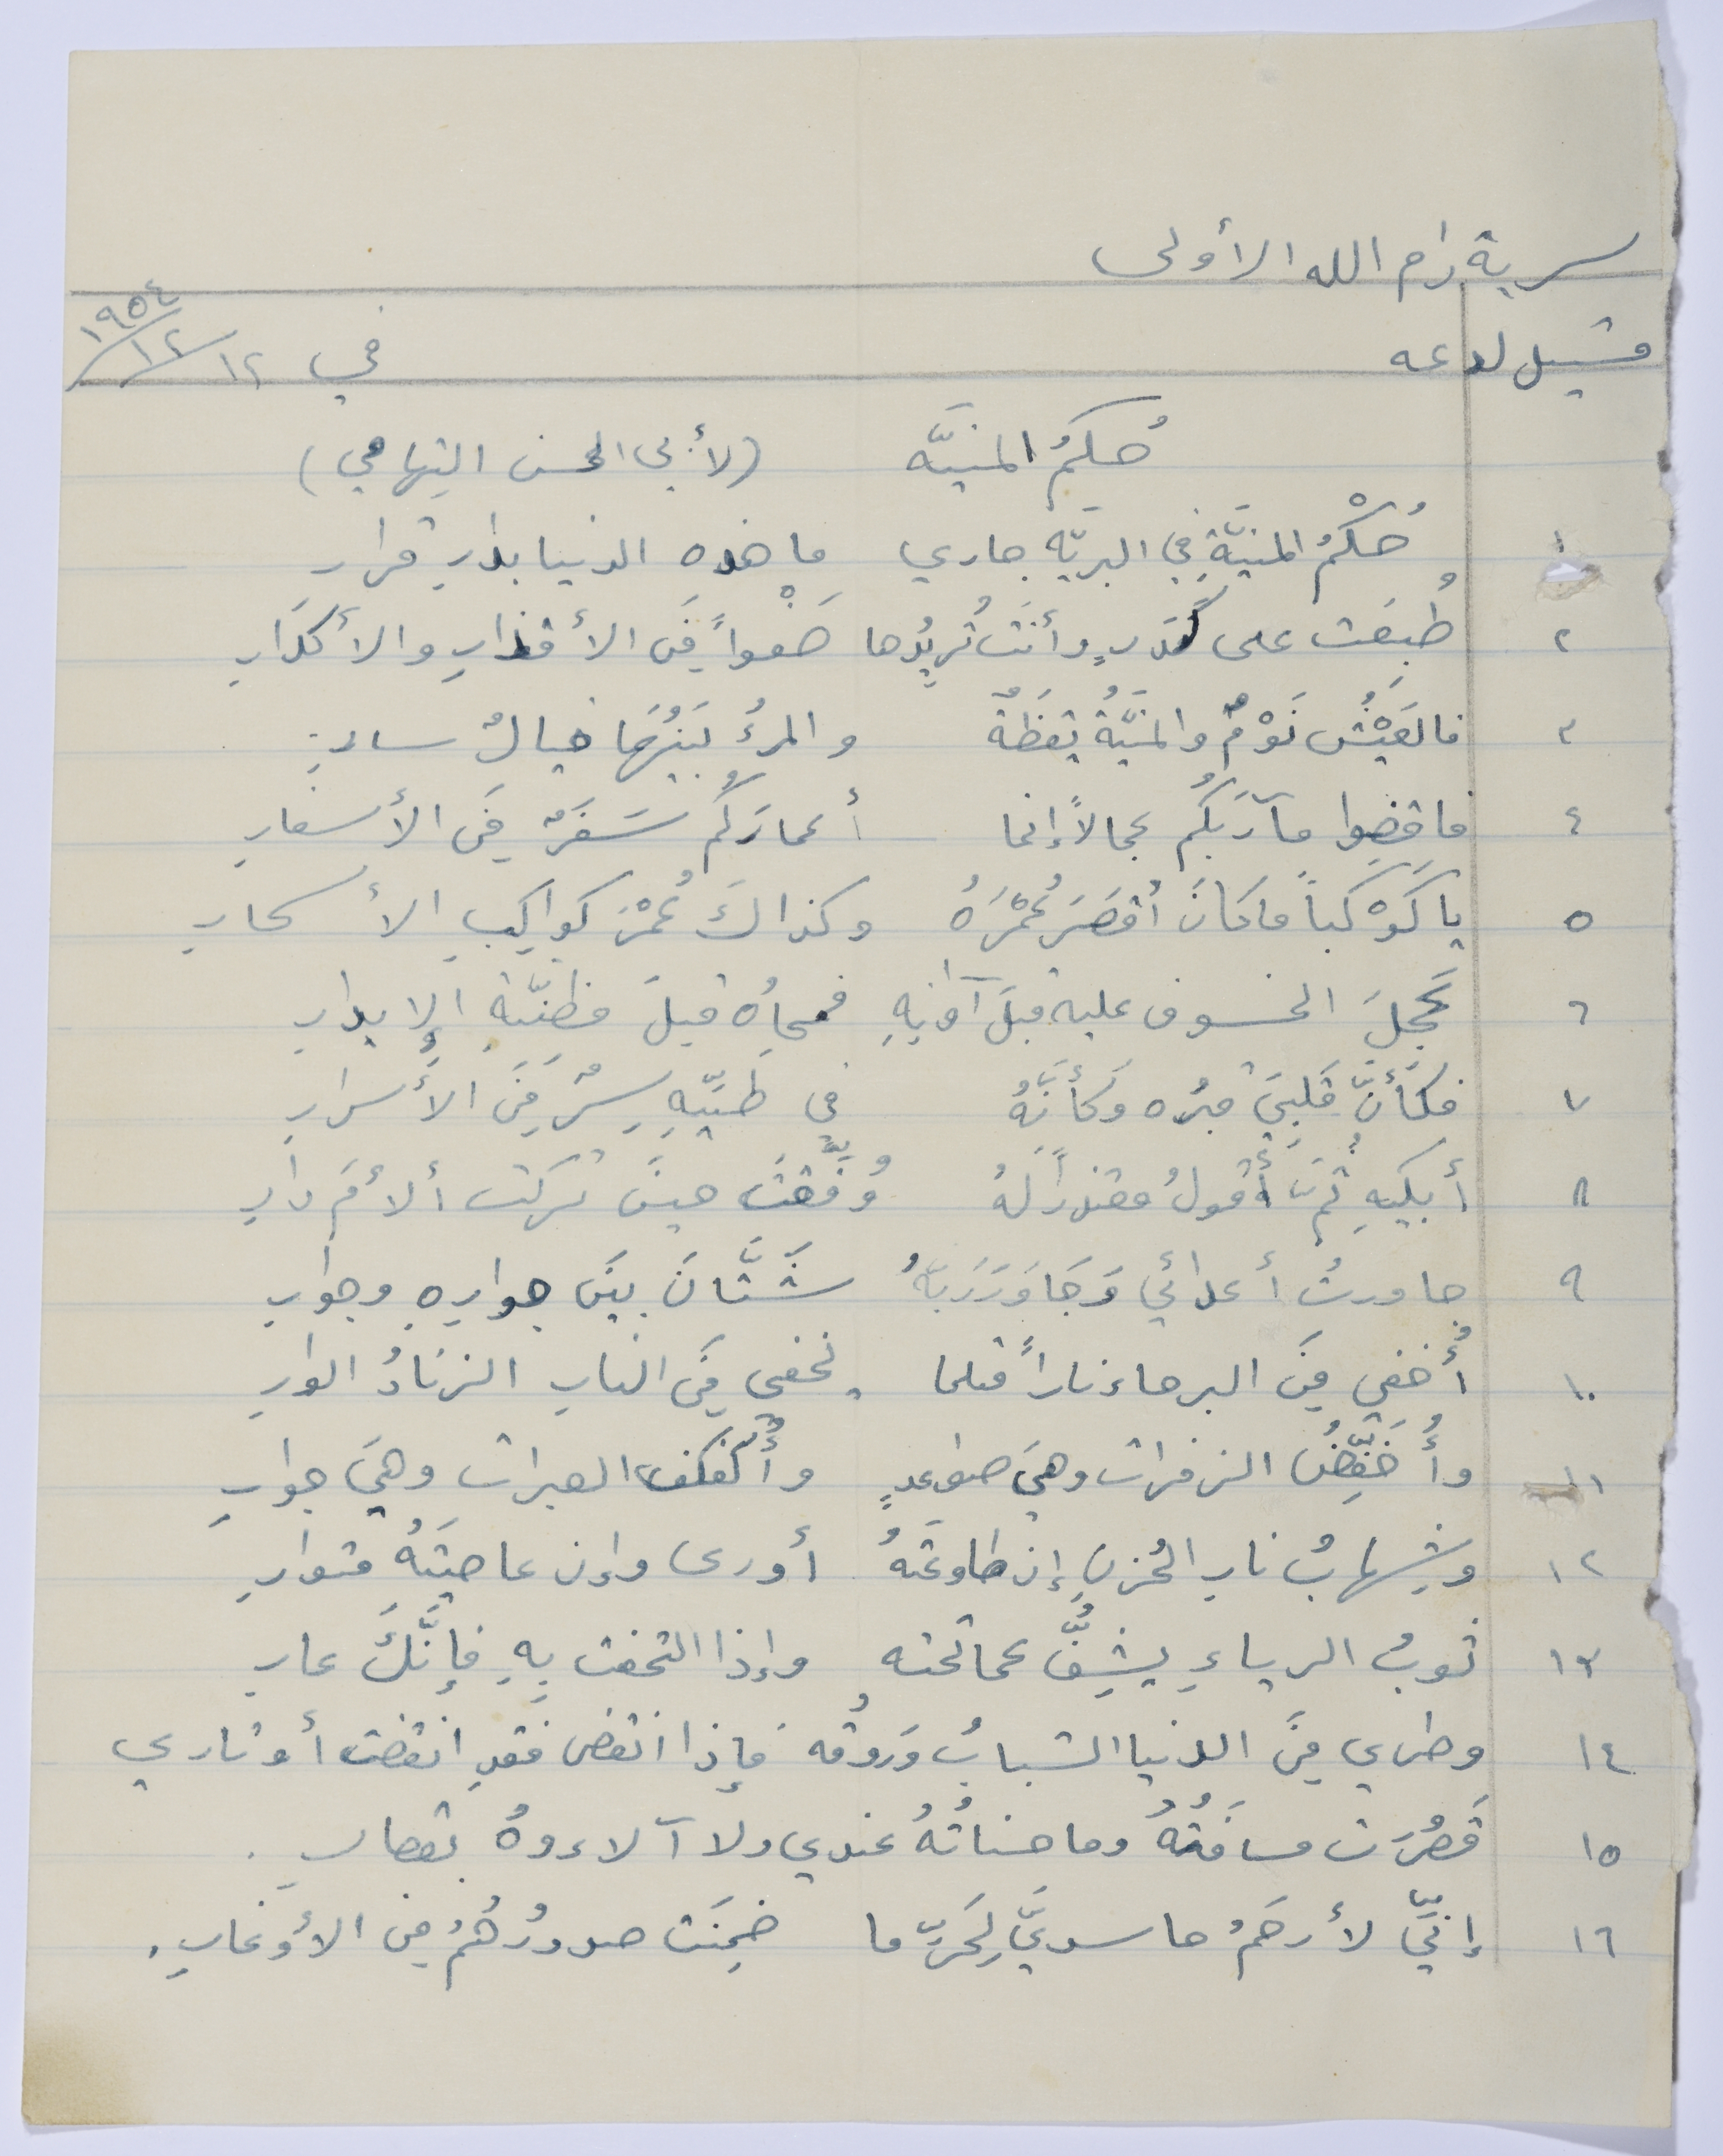 سرية رام الله الأولى
في ١٢/١٢/١٩٥٤
حُكمُ المنيَّه (لأبي الحسن التِهامي)
١ حُكْمُ المنيَّةِ في البريَّه جاري ما هذه الدنيا بدارِ قرار
٢ طُبِعَت على كَدَرٍ وأنتَ تُريدُها صَفْواً مِنَ الأقذارِ والأكدَارِ
٣ فالعَيْشُ نَوْمٌ والمنيَّةُ يقظَةٌ والمرءُ بَينَهُمَا خيالٌ سارِ
٤ فاقضِوا مآرَبَكُم عجالاً إنما أعمارَكُم سَفَرٌ مِنَ الأسفارِ
٥ يا كَوْكَباً ما كانَ أقصَرَ عُمْرَهُ وكذاكَ عُمْرَ كواكِبِ الأسحارِ
٦ عَجِلَ الخسوف عليه قبلَ آوانِهِ فمحاهُ قبلَ مظنَّة الإبدارِ
٧ فكَأنَّ قَلبِيَ قبرُه وَكأنَّهُ في طيِّهِ سِرٌ مِنَ الأسرارِ
٨ أبكيهِ ثُمَّ أقولُ معتذراً لَهُ وُفِّقتَ حينَ تركت ألأمَ دارِ
٩ جاورتُ أعدائي وَجَاوَرَ رَبَّهُ شَتَّانَ بينَ جوارِهِ وجوارِ
١٠ أُخفي مِنَ البرحاء ناراً مثلما يخفي مِنَ النارِ الزنادُ الوارِ
١١ وأُخَفِّضُ الزفرات وهيَ صواعدٍ وأُكفكف العبرات وهيَ جوارِ
١٢ وشِهابُ نارِ الحُزنِ إن طاوعَتَهُ أورى وإن عاصيتَهُ متوارِ
١٣ ثوبُ الرياءِ يشِفُّ عما تحته وإذا التحفت بِهِ فإنَّكَ عارِ
١٤ وطري مِنَ الدنيا الشبابُ وَروقُه فإذا انقضى فقدِ انقضت أوتاري
١٥ قَصُرَت مسافَتُهُ وما حسناتُهُ عندي ولا آلاءوهُ بقصارِ.
١٦ إنّيَ لأرحَمُ حاسديَّ لِحَرِّ ما ضمِنَت صدورُهُمُ مِن الأوغارِ.